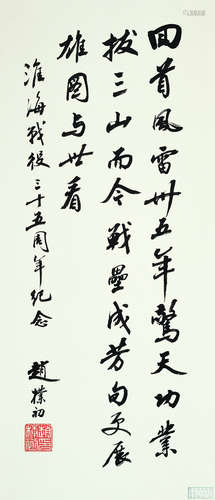 回首風雷卅五年驚天功業
拔三山而今戰壘成芳甸更展
雄图与世看
淮海战役三十五周年纪念
趙樸初